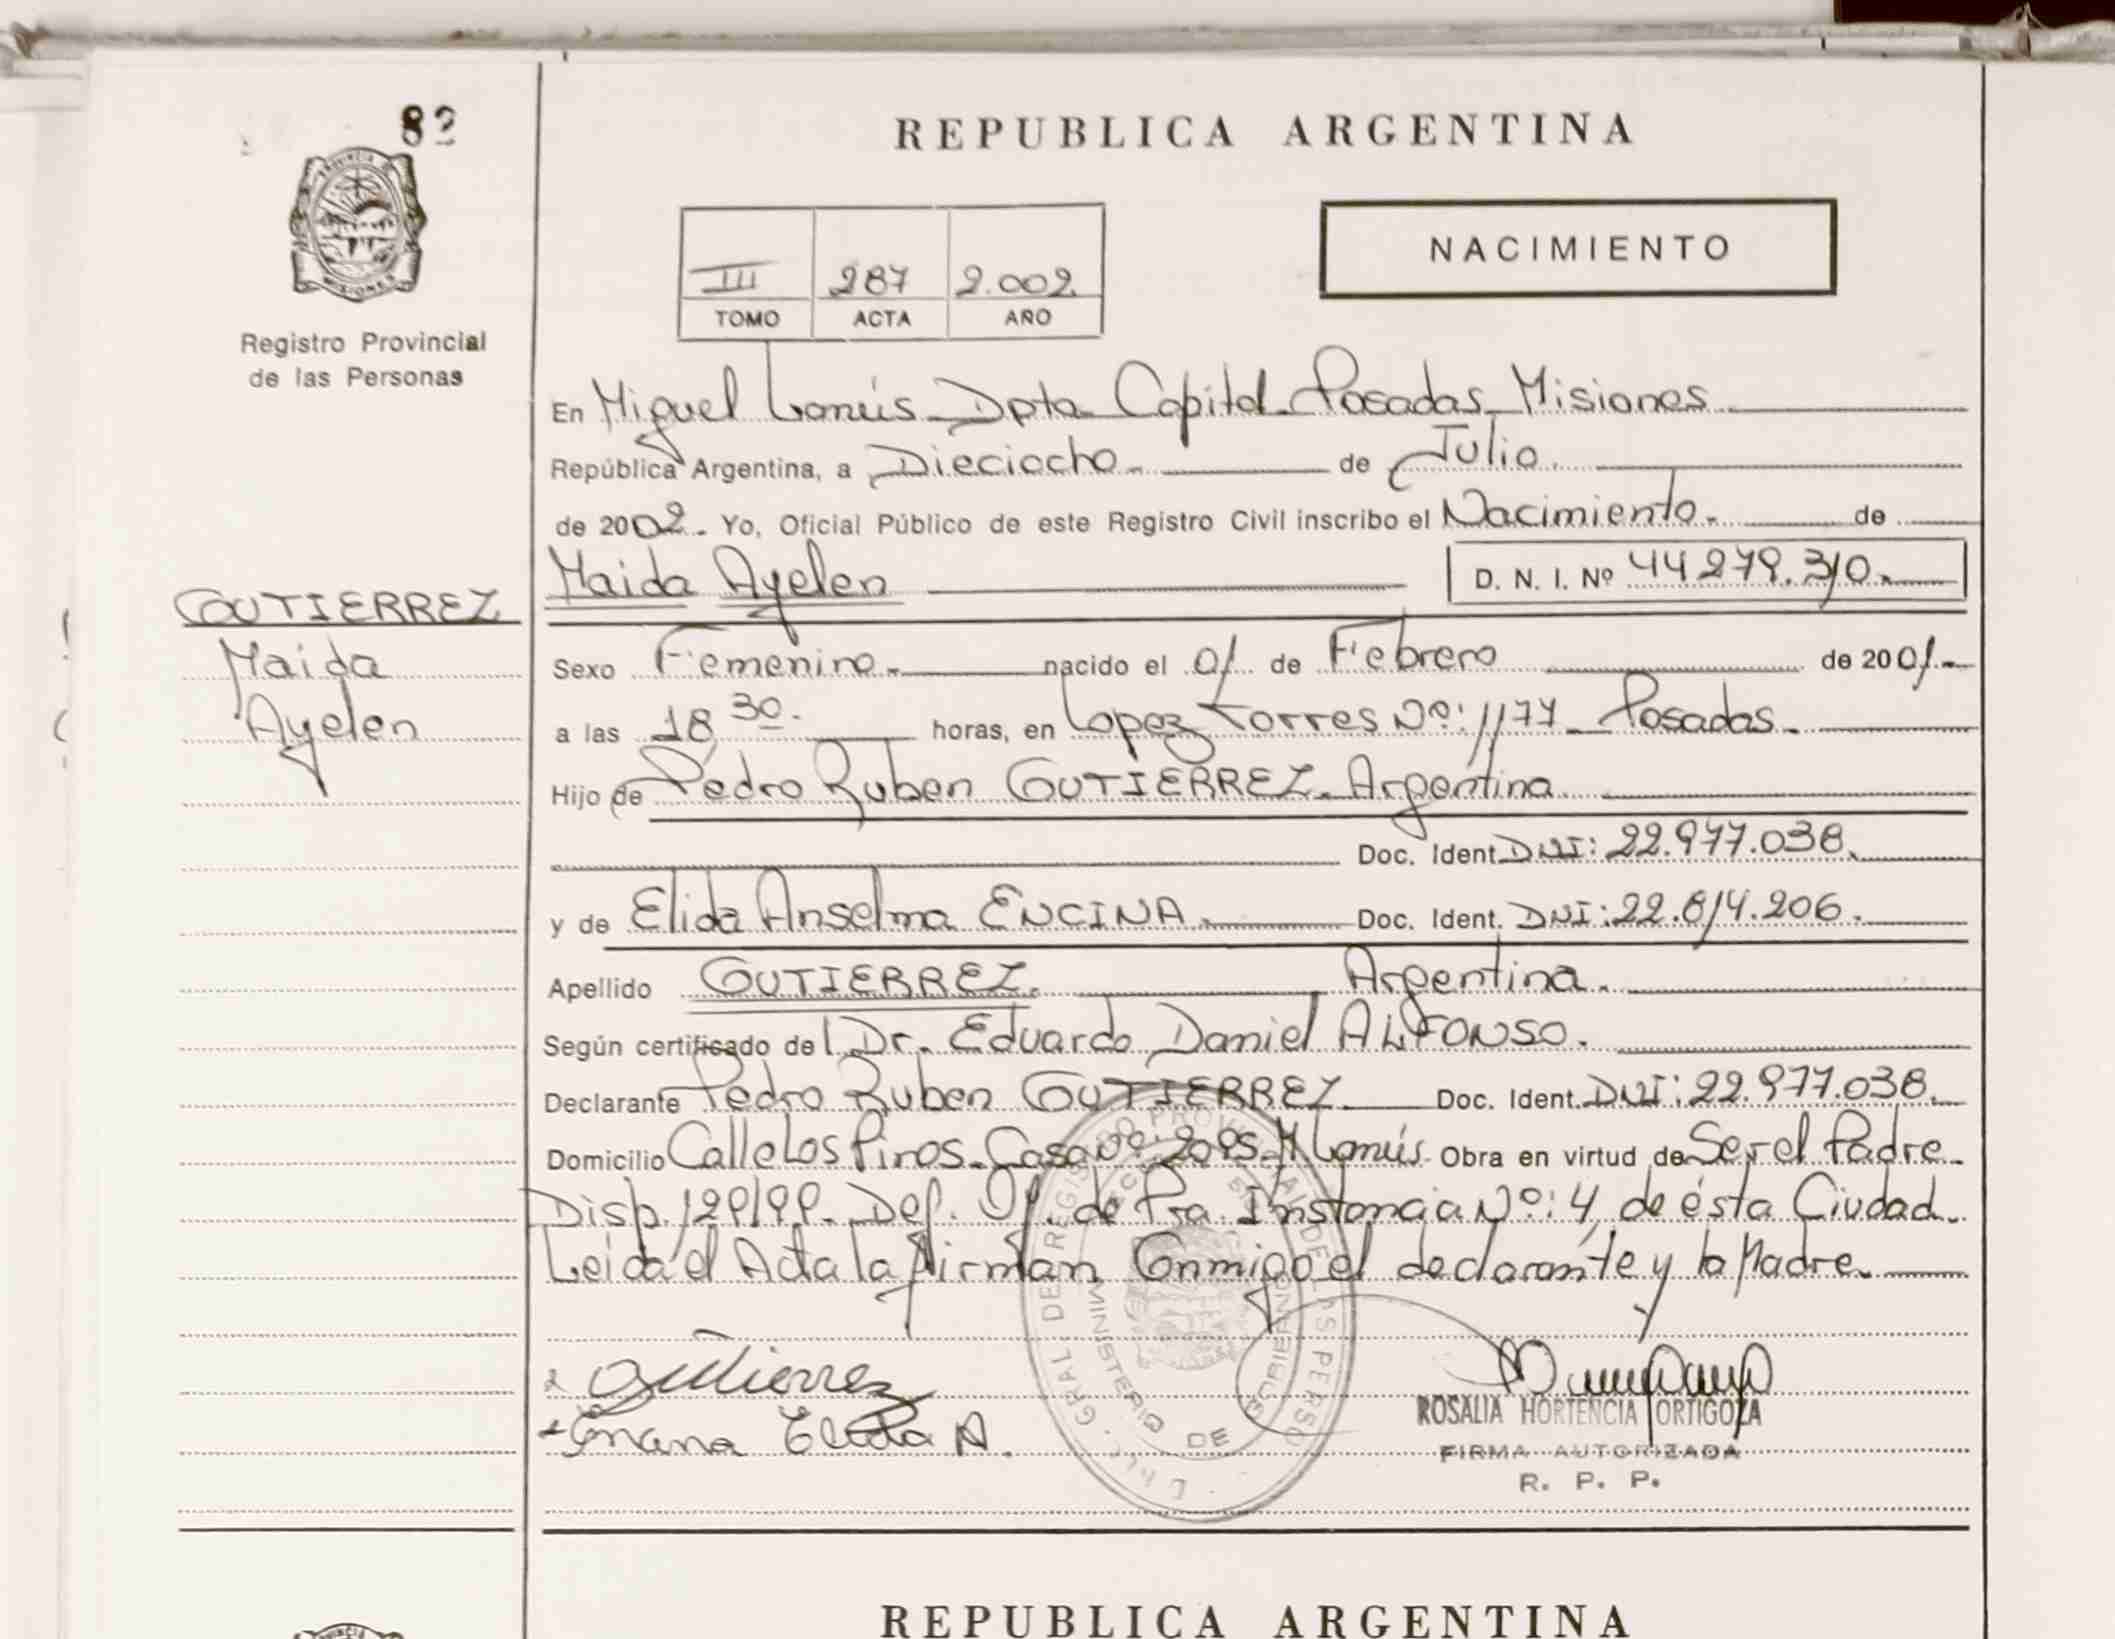 82
PROVINCIA DE
MISIONES
Registro Provincial
de las Personas
REPUBLICA ARGENTINA
NACIMIENTO
III 287 2.002
TOMO ACTA AÑO
En Miguel Lanús - Dpto Capital - Posadas - Misiones
República Argentina, a Dieciocho - de Julio
de 2002 - Yo, Oficial Público de este Registro Civil inscribo el Nacimiento - de
Maida Ayelen D. N. I. Nº 44.279.310.-
GUTIERREZ
Maida
Ayelen
Sexo Femenino.- nacido el 01 de Febrero de 2001.-
a las 18 30.- horas, en Lopez Torres Nº: 1174 - Posadas.-
Hijo de Pedro Ruben GUTIERREZ - Argentina
Doc. Ident. DNI: 22.977.038.
y de Elida Anselma ENCINA.- Doc. Ident. DNI: 22.814.206.-
Apellido GUTIERREZ. Argentina.-
Según certificado del Dr. Eduardo Daniel ALFONSO.
Declarante Pedro Ruben GUTIERREZ Doc. Ident. DNI: 22.977.038.-
Domicilio Calle Los Piros - Casa Nº: 2095 - M. Lanús Obra en virtud de Ser el Padre -
Disp. 129/99 - Def. Of. de Pra. Instancia Nº: 4, de ésta Ciudad.
Leída el Acta la firman Conmigo el declarante y la Madre.
Gutierrez
Elida A.
ROSALIA HORTENCIA ORTIGOZA
FIRMA AUTORIZADA
R. P. P.
MINISTERIO DE GOBIERNO
REPUBLICA ARGENTINA